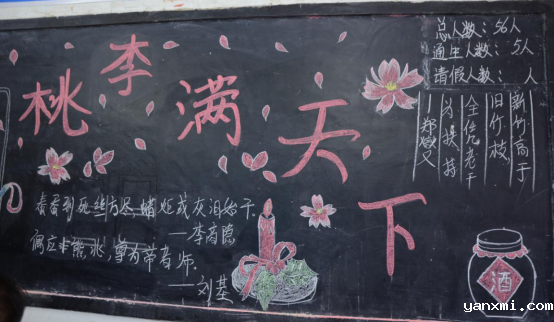 桃李满天下
总人数：56人
通生人数：5人
请假人数：人
新竹高于
旧竹枝，
全凭老干
为扶持
—郑燮
春蚕到死丝方尽，蜡炬成灰泪始干
—李商隐
偶应非熊兆，尊为帝者师。
—刘基
酒
yanxmi.com